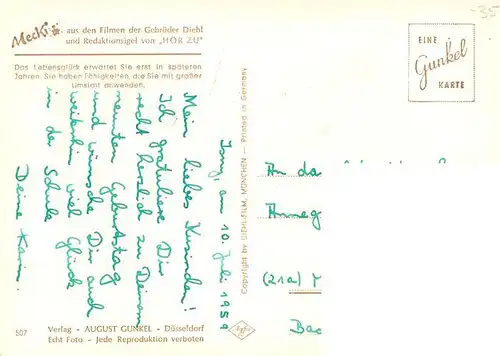 -35
Mecki aus den Filmen der Gebrüder Diehl
und Redaktionsigel von "HÖR ZU"
Das Lebensglück erwartet Sie erst in späteren
Jahren. Sie haben Fähigkeiten, die Sie mit großer
Umsicht anwenden.
EINE
Gunkel
KARTE
Isny, am 10. Juli 1959
Mein liebes Kusinchen!
Ich gratuliere Dir
recht herzlich zu Deinem
neunten Geburtstag
und wünsche Dir auch
weiterhin viel Glück
in der Schule
Deine Karin.
Copyright by DIEHL-FILM, MÜNCHEN - Printed in Germany
An da
Anneg
(21a)
Bad
507
Verlag - AUGUST GUNKEL - Düsseldorf
Echt Foto - Jede Reproduktion verboten
Agfa